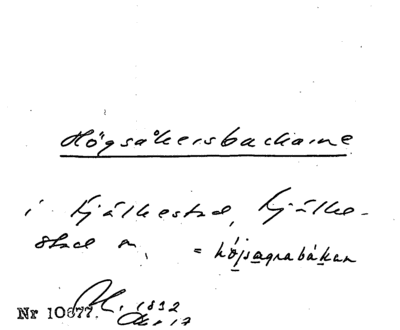 Högsåkersbackarne
i Kjälkestad, Kjälke-
stad n, = hö́jsagrabákan
Nr 10677. 1892